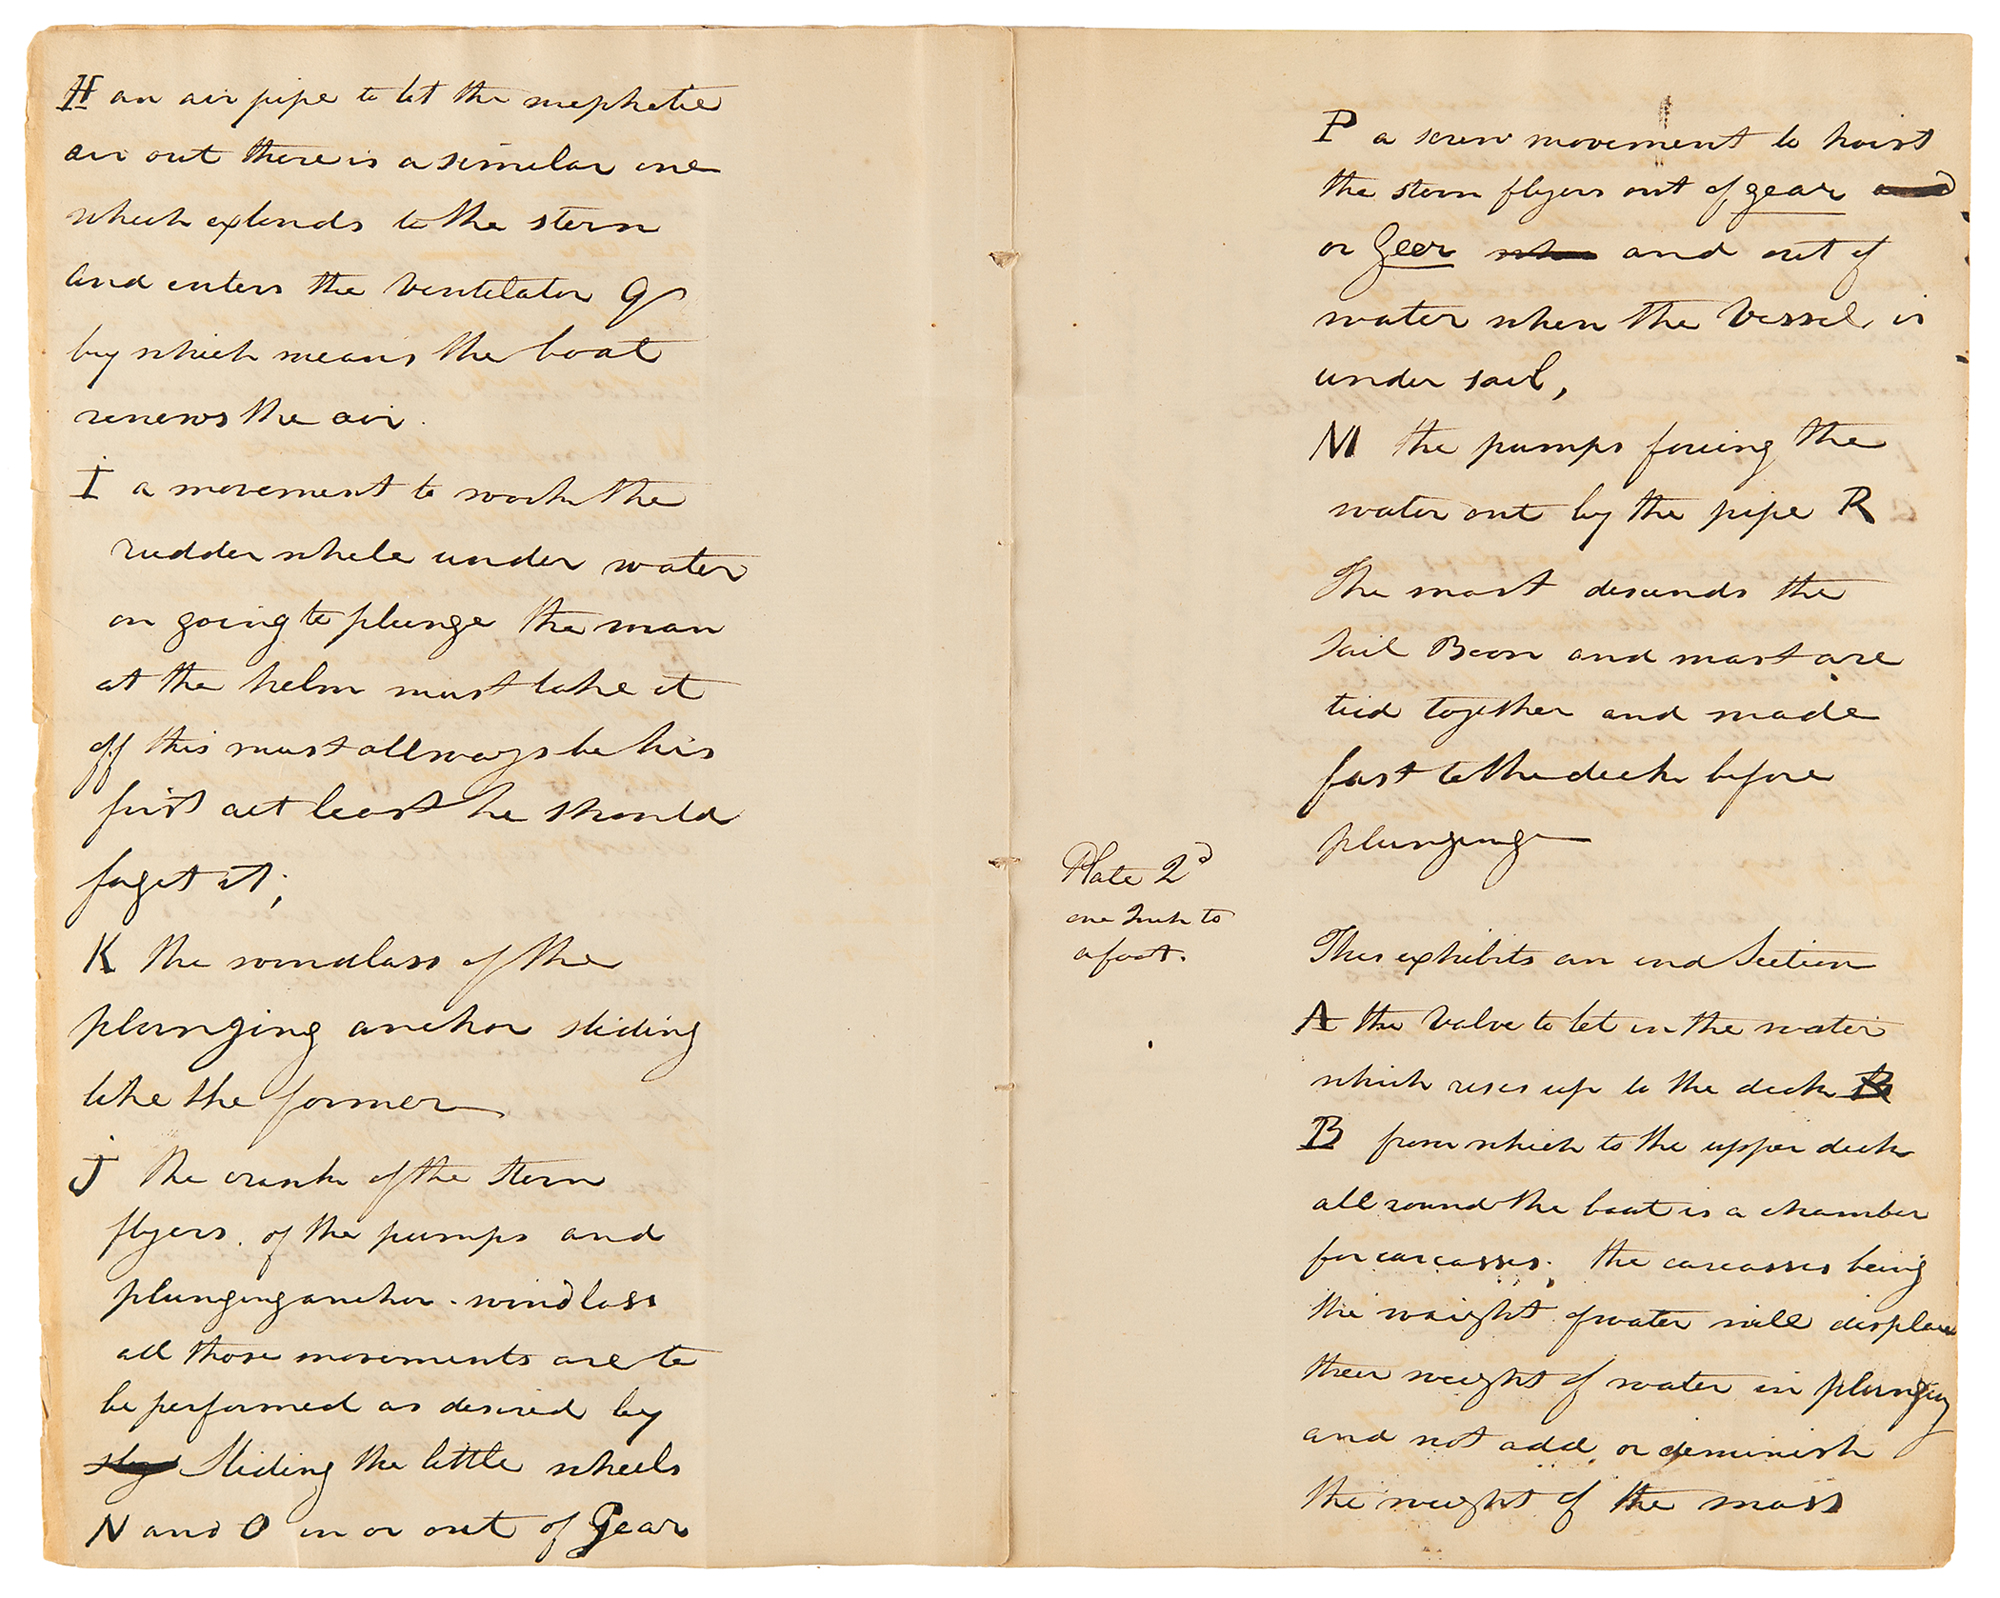 H an air pipe to let the mephetie
air out there is a similar one
which extends to the stern
and enters the Ventelator G
by which means the boat
renews the air.
I a movement to work the
rudder while under water
on going to plunge the man
at the helm must take it
off this must allways be his
first act least he should
forget it;
K the windlass of the
plunging anchor sliding
like the former
J the crank of the stern
flyers. of the pumps and
plunging anchor. windlass
all those movements are to
be performed as desired by
Sliding the little wheels
N and O in or out of Gear
P a screw movement to hoist
the stern flyers out of gear and
or Geer when and out of
water when the Vessel is
under sail,
M the pumps forcing the
water out by the pipe R
The mast descends the
Sail Boom and mast are
tied together and made
fast to the deck before
plunging
Plate 2d
one Inch to
a foot.
This exhibits an end Section
A the Valve to let in the water
which rises up to the deck B
B from which to the upper deck
all round the boat is a chamber
for carcasses. the carcasses being
the weight of water will displace
their weight of water in plunging
and not add or deminish
the weight of the mass